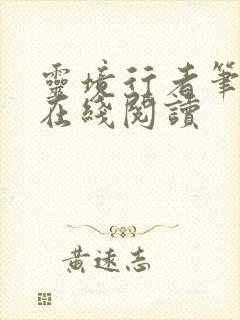 靈境行者筆
在綫閱讀
黃遠志